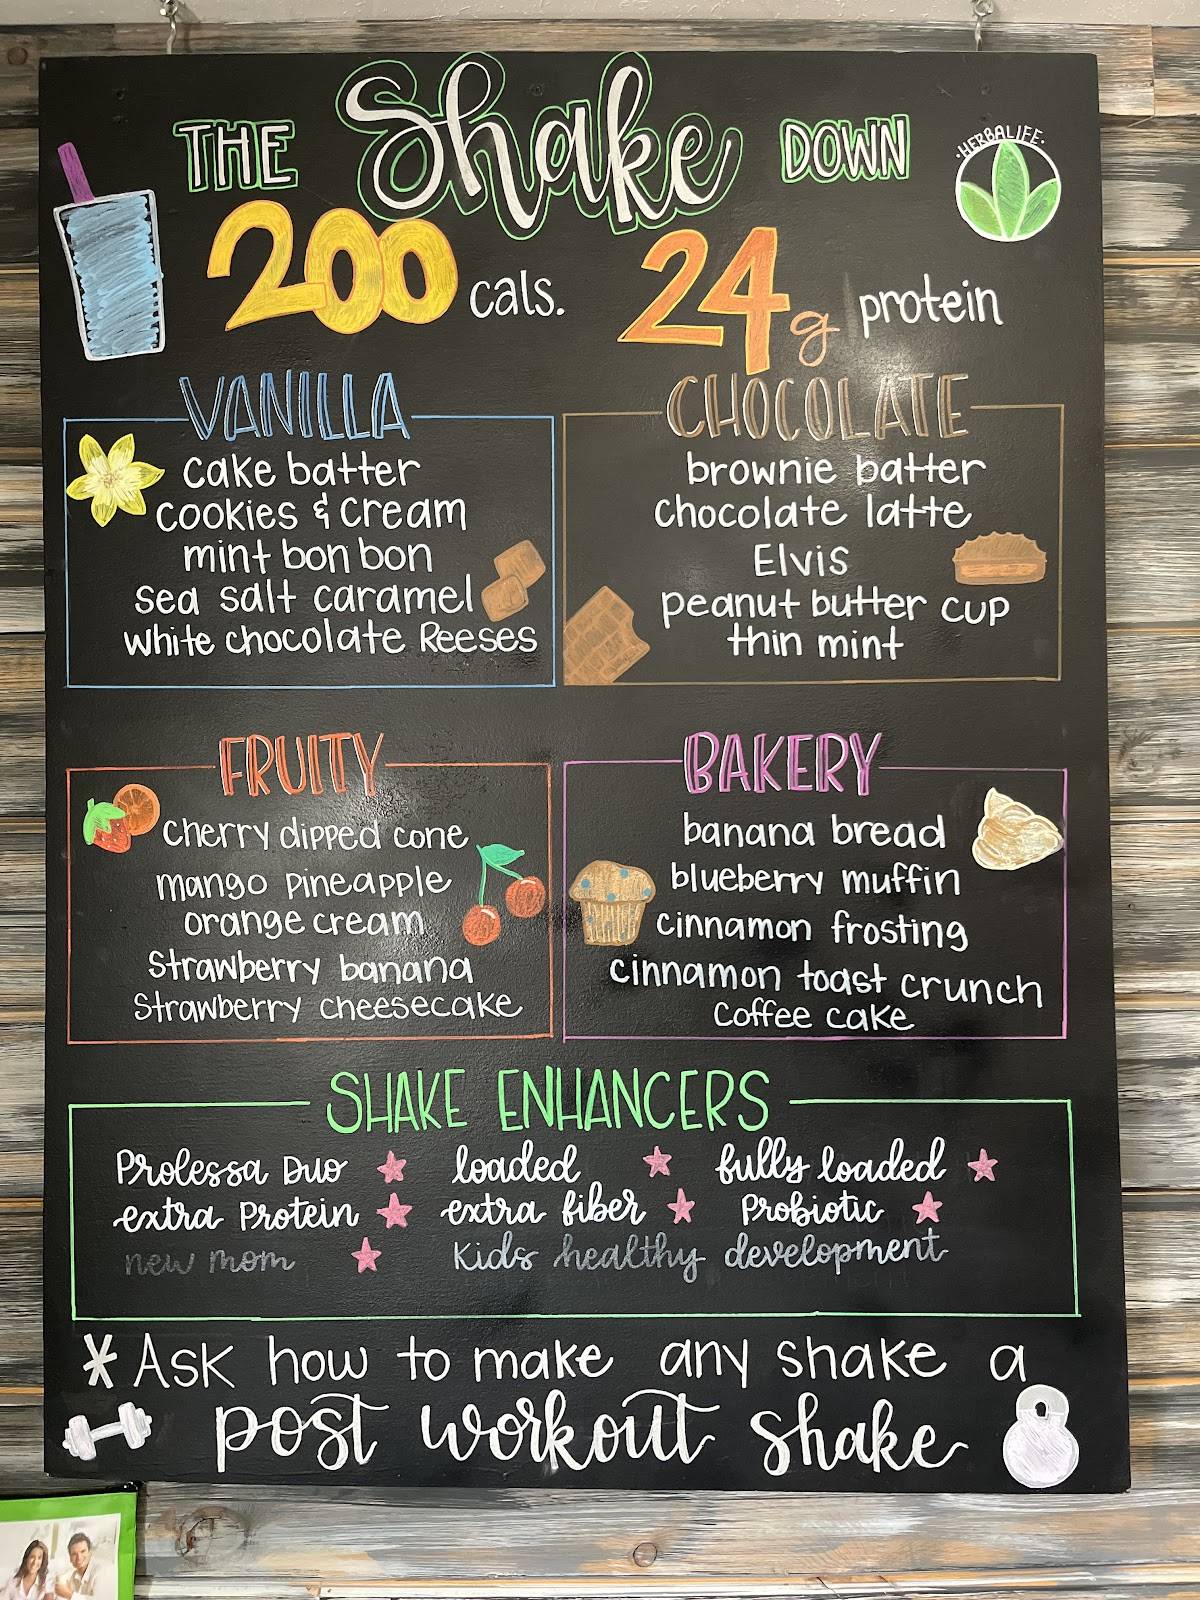 THE Shake DOWN
·HERBALIFE·
200 cals. 24g protein
VANILLA
cake batter
cookies & cream
mint bon bon
sea salt caramel
white chocolate Reeses
CHOCOLATE
brownie batter
chocolate latte
Elvis
peanut butter cup
thin mint
FRUITY
cherry dipped cone
mango pineapple
orange cream
strawberry banana
strawberry cheesecake
BAKERY
banana bread
blueberry muffin
cinnamon frosting
cinnamon toast crunch
coffee cake
SHAKE ENHANCERS
Prolessa Duo ★ loaded ★ fully loaded ★
extra Protein ★ extra fiber ★ Probiotic ★
new mom ★ Kids healthy development
*Ask how to make any shake a
post workout shake